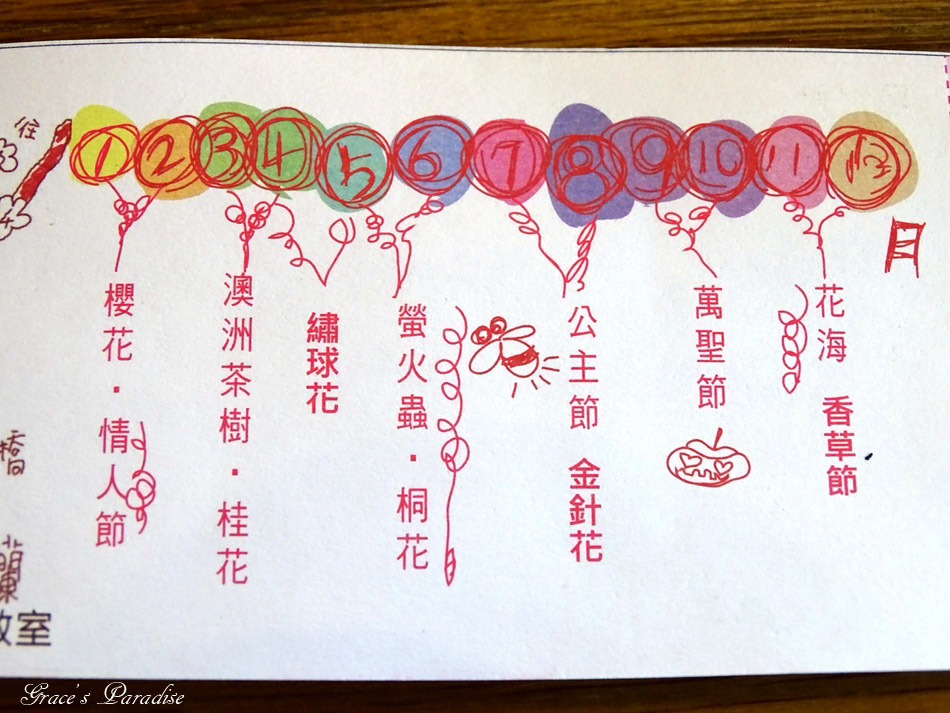 往
1 2 3 4 5 6 7 8 9 10 11 12 月
櫻花·情人節
澳洲茶樹·桂花
繡球花
螢火蟲·桐花
公主節 金針花
萬聖節
花海 香草節
橋
蘭
教室
Grace's Paradise